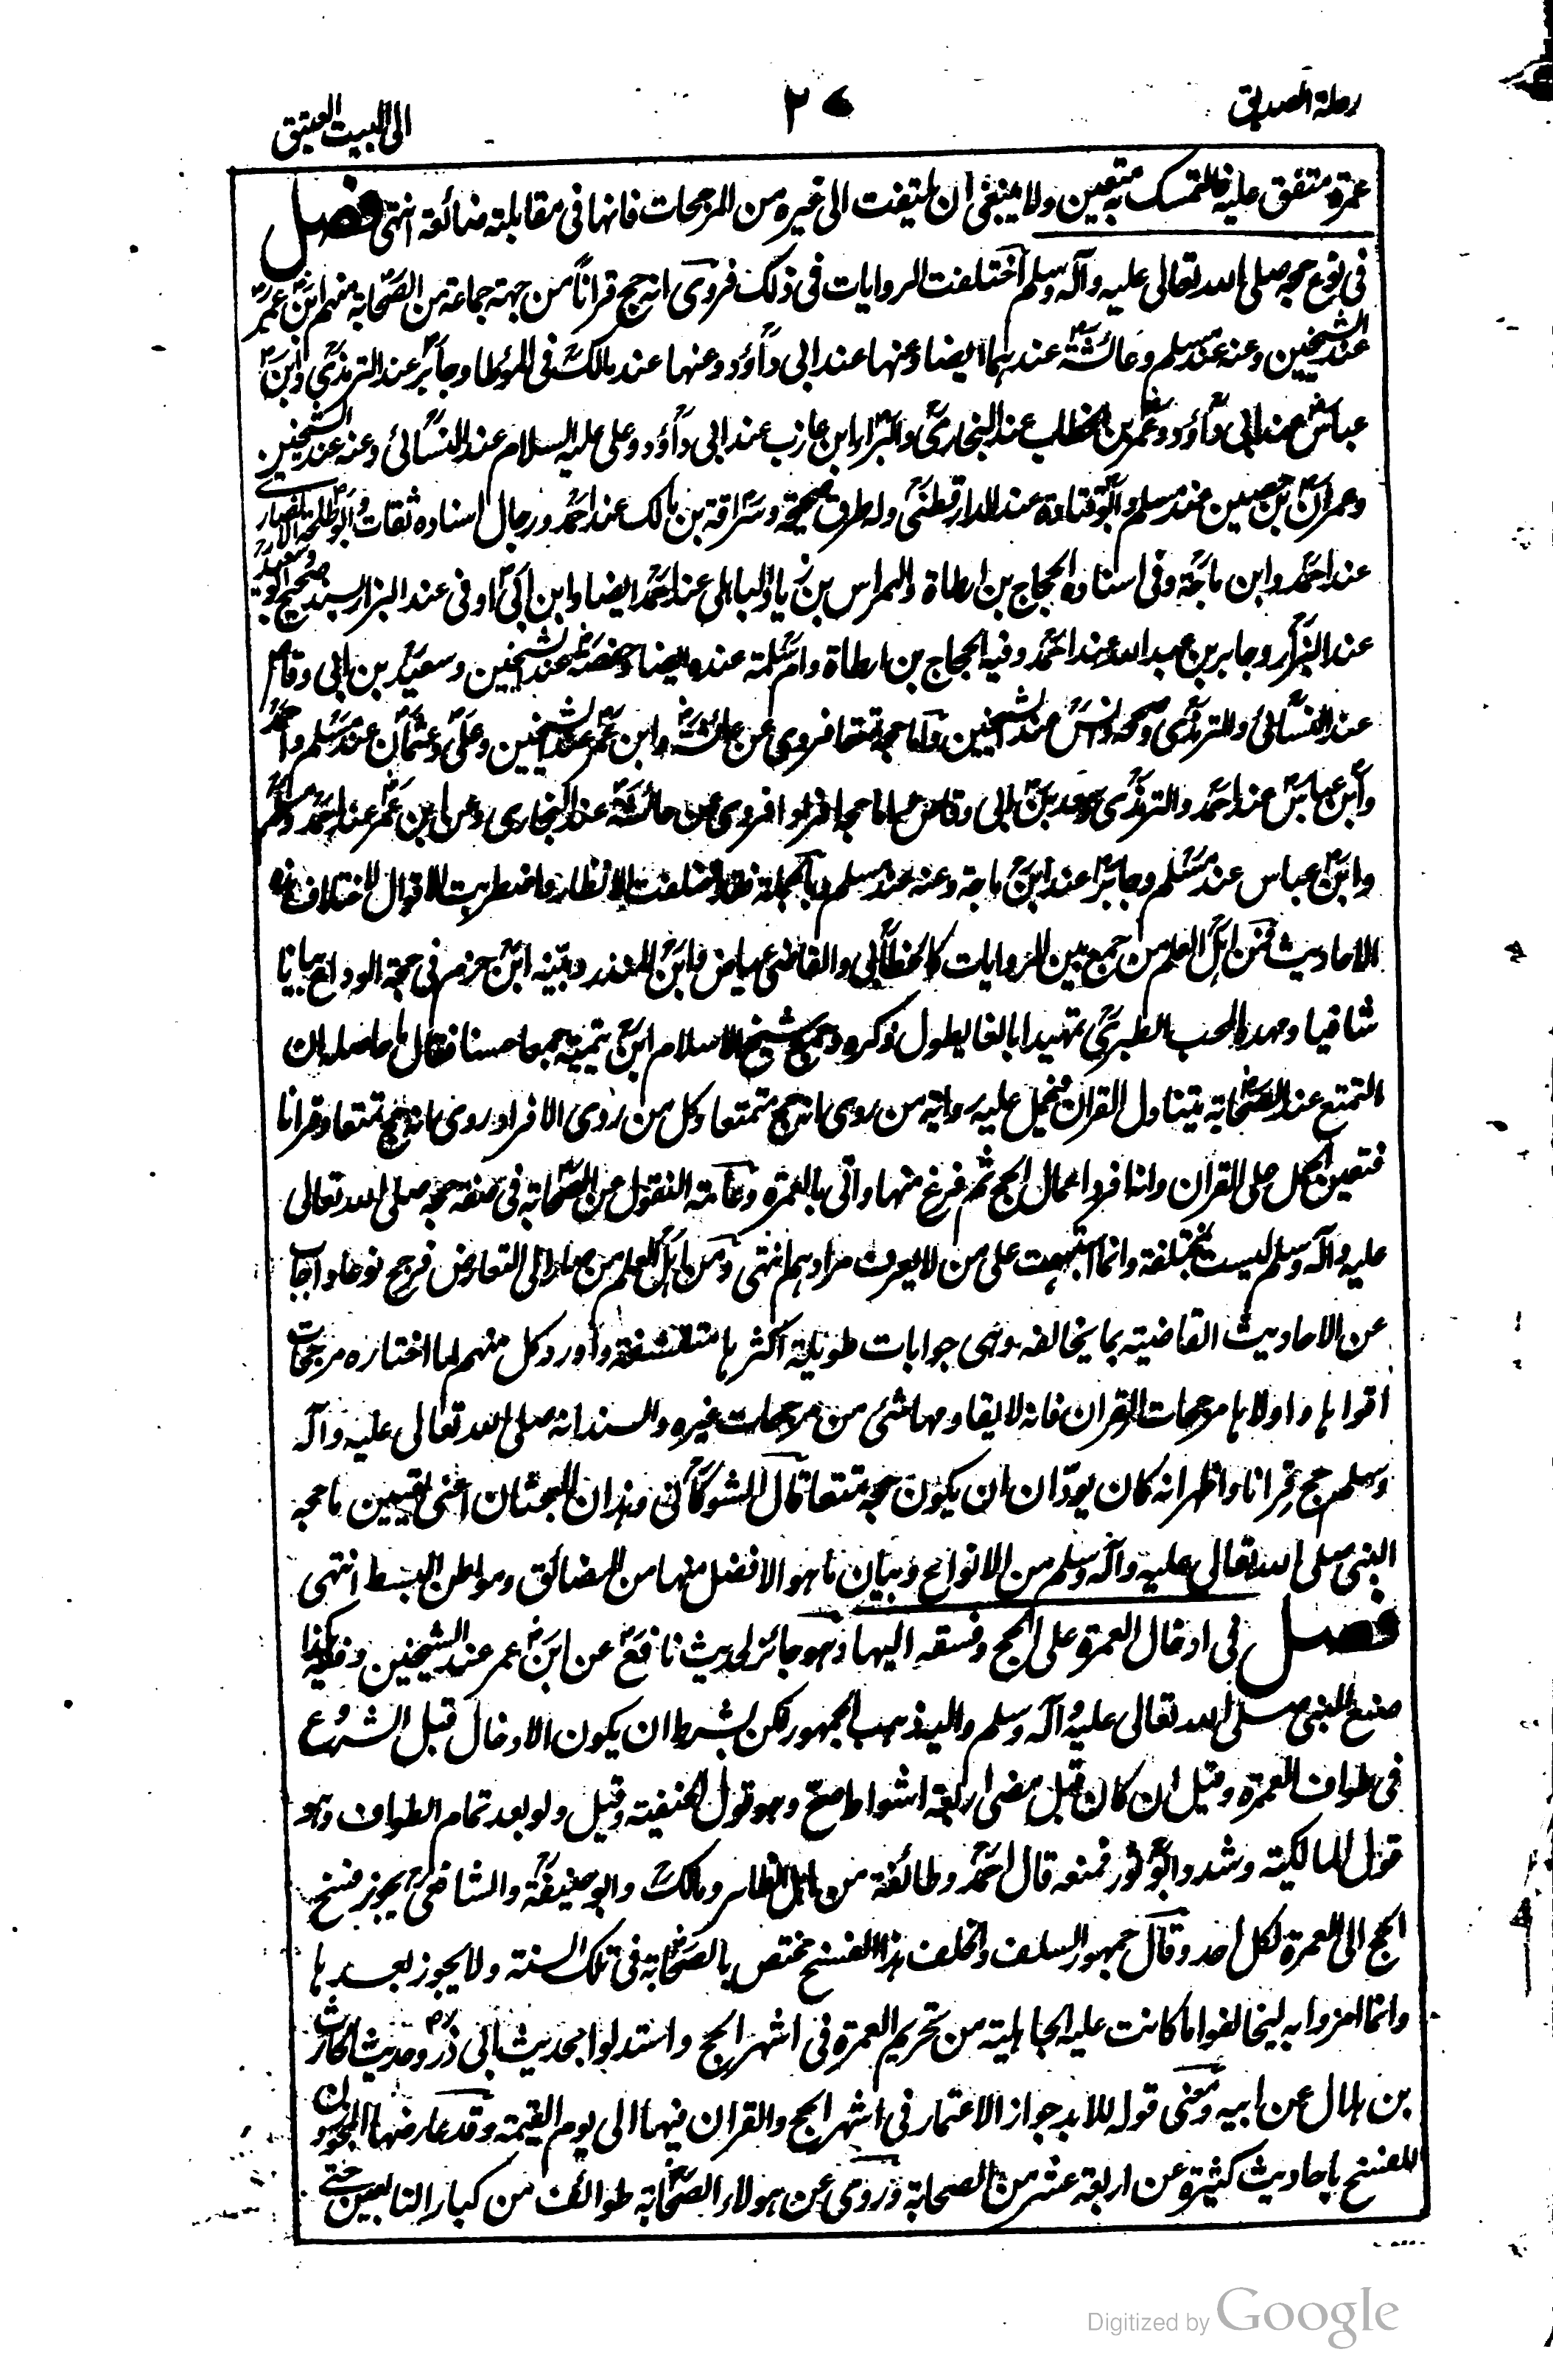 رحلة الصديق
٢٧
الى البيت العتيق
عمرة متفق عليه فالتمسك به متعين ولا ينبغي ان يلتفت الى غيره من المرجحات فانها في مقابلته ضائعة انتهى فصل
في نوع حجه صلى الله تعالى عليه وآله وسلم اختلفت الروايات في ذلك فروى انه حج قرانا من جهة جماعة من الصحابة منهم ابن عمر
عند الشيخين وعنه عند مسلم وعائشة عندهما ايضا وعنها عند ابى داؤد وعنها عند مالك في الموطا وجابر عند الترمذى وابن
عباس عند ابى داؤد وعمر بن الخطاب عند البخارى والبراء بن عازب عند ابى داؤد وعلى عليه السلام عند النسائى وعنه عند الشيخين
وعمران بن حصين عند مسلم وابو قتادة عند الدارقطنى وله طرق صحيحة وسراقة بن مالك عند احمد ورجال اسناده ثقات وابو طلحة الانصارى
عند احمد وابن ماجة وفى اسناده الحجاج بن ارطاة والهرماس بن زياد الباهلى عند احمد ايضا وابن ابى اوفى عند البزار بسند صحيح وابو سعيد
عند البزار وجابر بن عبد الله عند احمد وفيه الحجاج بن ارطاة وام سلمة عنده ايضا وحفصة عند الشيخين وسعد بن ابى وقاص
عند النسائى والترمذى وصححه وانس عند الشيخين واما حجه تمتعا فروى عن عائشة وابن عمر عند الشيخين وعلى وعثمان عند مسلم واحمد
وابن عباس عند احمد والترمذى وسعد بن ابى وقاص واما حجه افرادا فروى عن عائشة عند البخارى وعن ابن عمر عند احمد ومسلم
وابن عباس عند مسلم وجابر عند ابن ماجة وعنه عند مسلم وبالجملة فقد اختلفت الانظار واضطربت الاقوال لاختلاف هذه
الاحاديث فمن اهل العلم من جمع بين الروايات كالخطابى والقاضى عياض وابن المنذر وبينه ابن حزم في حجة الوداع بيانا
شافيا ومهده المحب الطبرى تمهيدا بالغا يطول ذكره وجمع شيخ الاسلام ابن تيمية جمعا حسنا فقال ما حاصله ان
التمتع عند الصحابة يتناول القران فيحمل عليه رواية من روى انه حج متمتعا وكل من روى الافراد روى انه حج تمتعا وقرانا
فتعين الحمل على القران وانه افرد اعمال الحج ثم فرغ منها واتى بالعمرة وعامة النقول عن الصحابة في صفة حجه صلى الله تعالى
عليه وآله وسلم ليست بمختلفة وانما اشتبهت على من لا يعرف مرادهم انتهى ومن اهل العلم من صار الى التعارض فرجح نوعا واجاب
عن الاحاديث القاضية بما يخالفه وهى جوابات طويلة اكثرها متعسفة واورد كل منهم لما اختاره مرجحات
اقواها واولاها مرجحات القران فانه لا يقاومها شئ من مرجحات غيره والسند انه صلى الله تعالى عليه وآله
وسلم حج قرانا واظهر انه كان يود ان ان يكون حجه تمتعا قال الشوكانى وهذان البحثان اعنى تعيين ما حجه
النبى صلى الله تعالى عليه وآله وسلم من الانواع وبيان ما هو الافضل منها من المضائق ومواطن البسط انتهى
فصل في ادخال العمرة على الحج وفسخه اليها وهو جائز لحديث نافع عن ابن عمر عند الشيخين وفيه هكذا
صنع النبى صلى الله تعالى عليه وآله وسلم واليه ذهب الجمهور لكن بشرط ان يكون الادخال قبل الشروع
في طواف العمرة وقيل ان كان قبل مضى اربعة اشواط صح وهو قول الحنفية وقيل ولو بعد تمام الطواف وهو
قول المالكية وشذ ابو ثور فمنعه قال احمد وطائفة من اهل الظاهر ومالك وابو حنيفة والشافعى يجوز فسخ
الحج الى العمرة لكل احد وقال جمهور السلف والخلف هذا الفسخ مختص بالصحابة في تلك السنة ولا يجوز بعدها
وانما امروا به ليخالفوا ما كانت عليه الجاهلية من تحريم العمرة في اشهر الحج واستدلوا بحديث ابى ذر وحديث الحارث
بن بلال عن ابيه ومعنى قوله للابد جواز الاعتمار في اشهر الحج والقران فيهما الى يوم القيمة وقد عارضها المجوزون
للفسخ باحاديث كثيرة عن اربعة عشر من الصحابة وروى عن هولاء الصحابة طوائف من كبار التابعين حتى
Digitized by Google